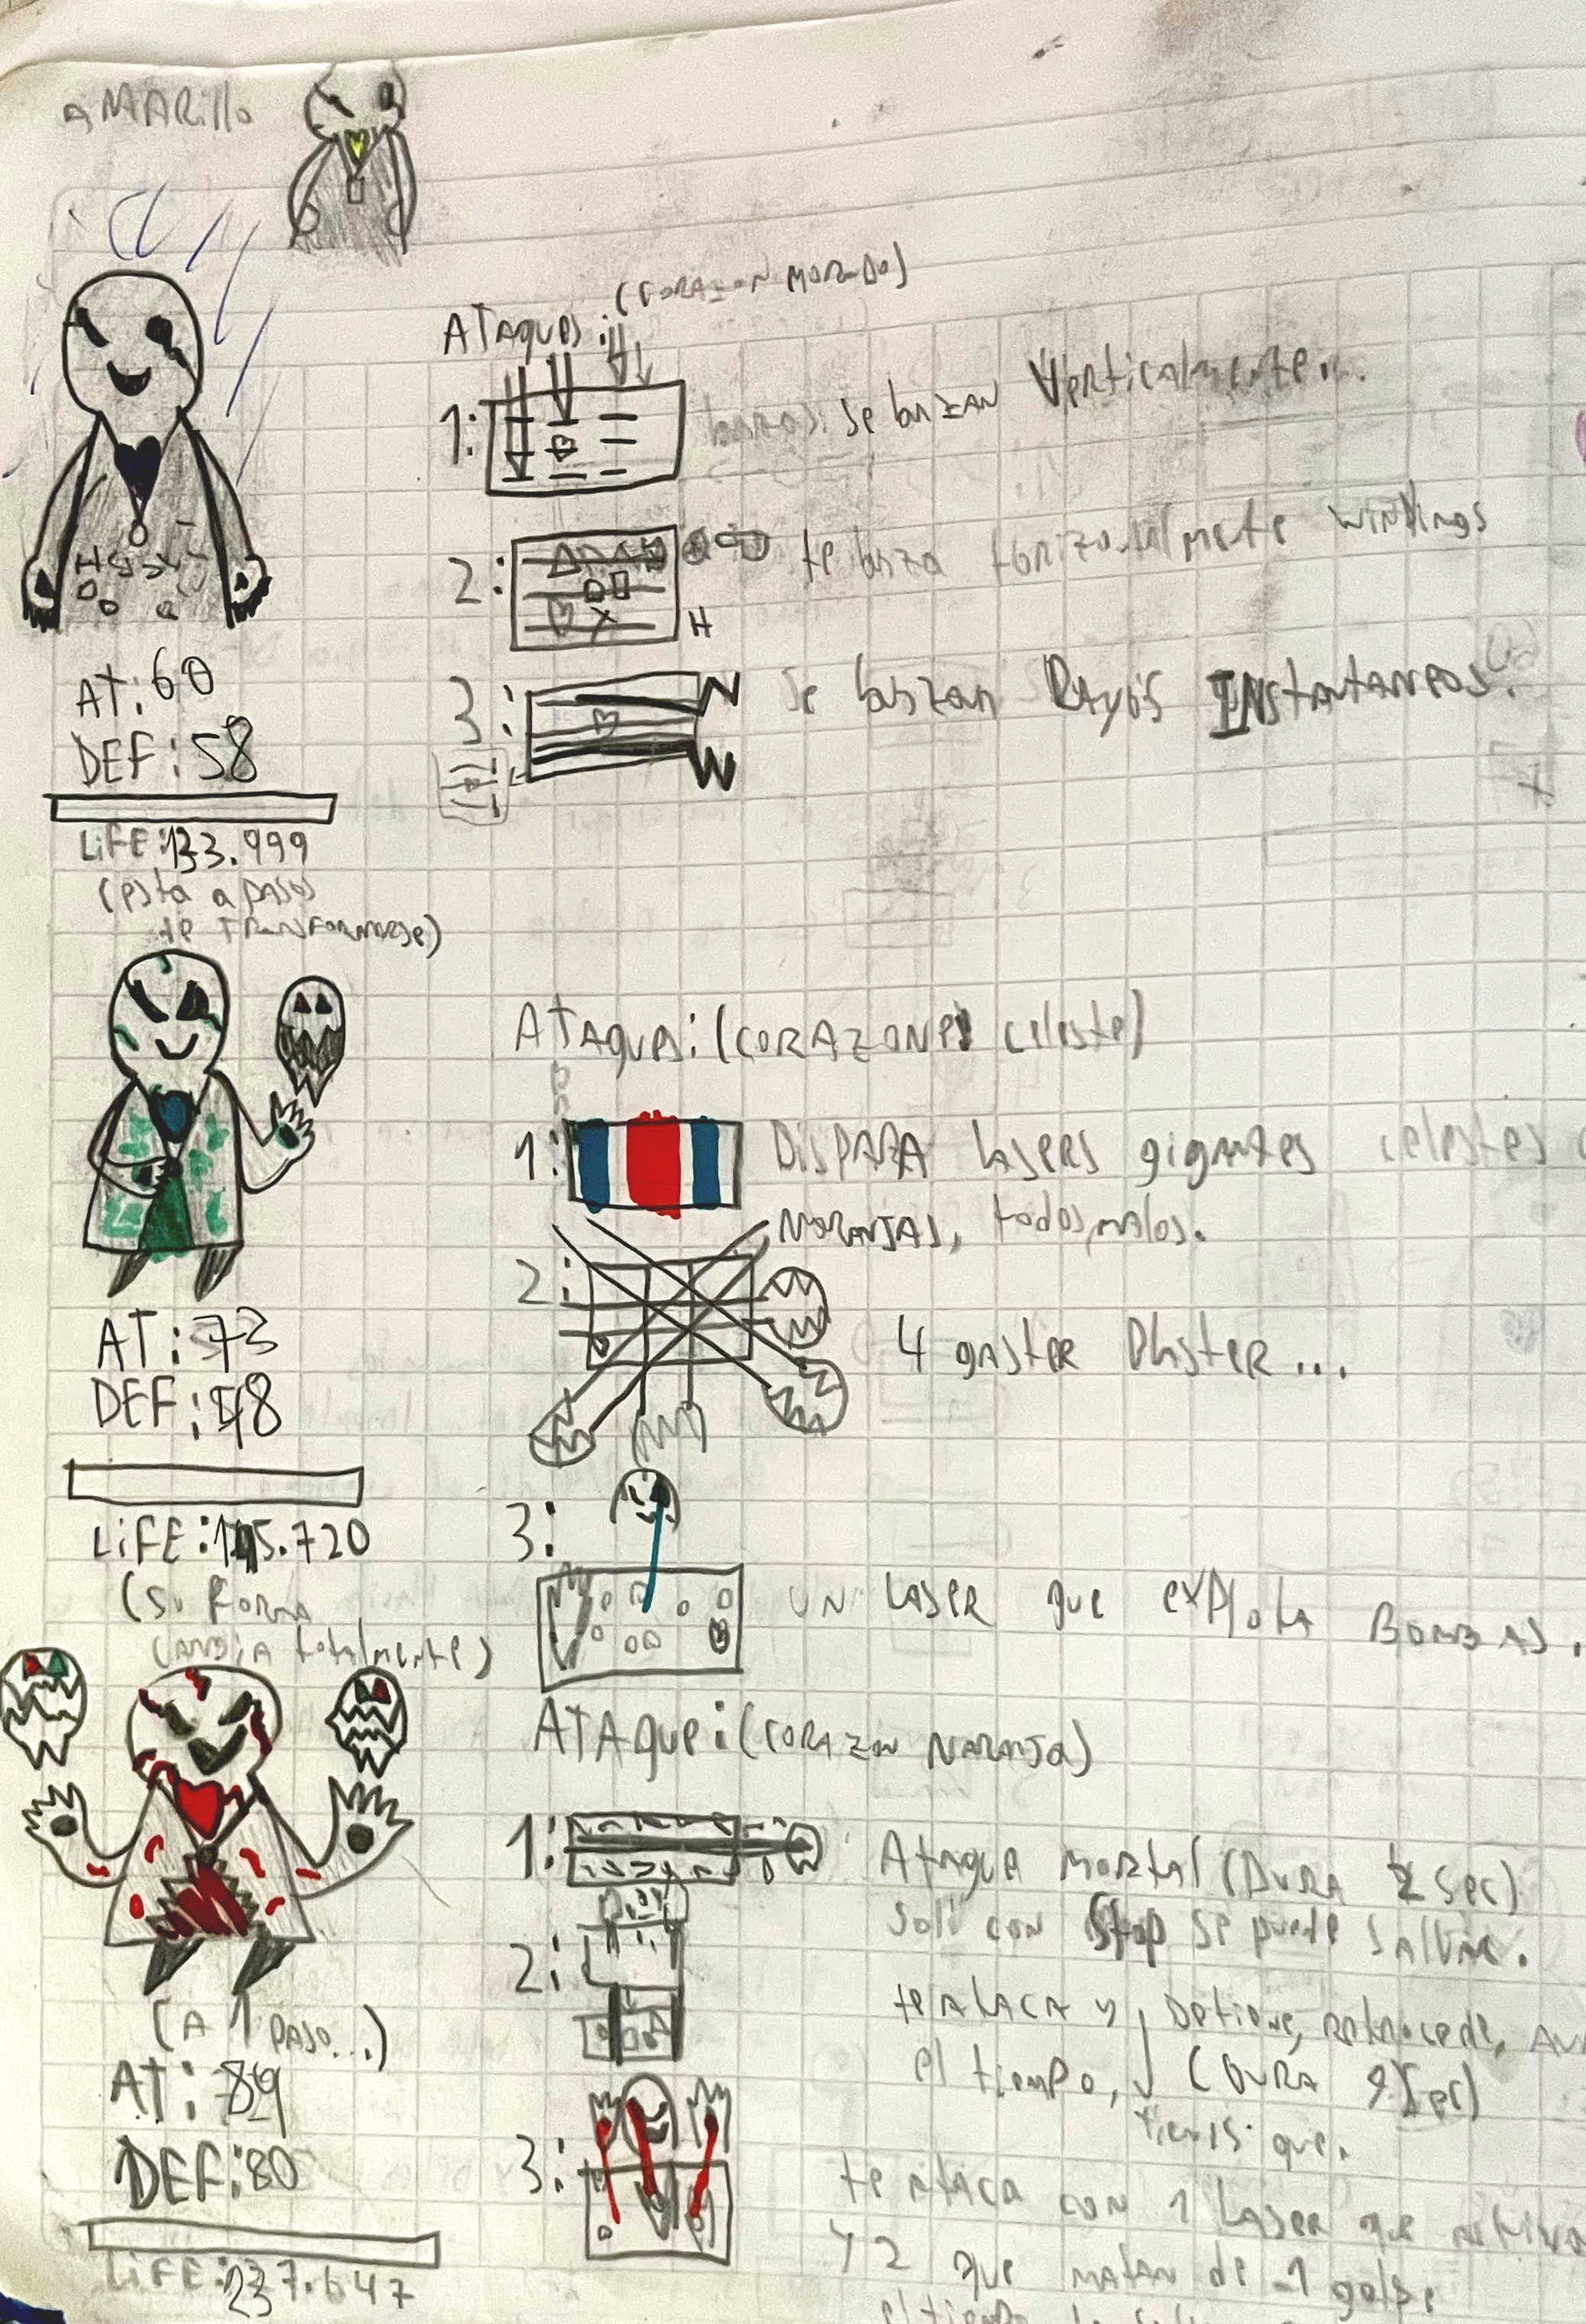 AMARillo
Ataques: (CORAZON MORADO)
1: se lanzan Verticalmente...
2: te lanza
H
3: Se lanzan Rayos INstantaneos.
N
W
AT: 60
DEF: 58
LiFE: 133.999
(esta a pasos
de TRANSFORMARSE)
ATAques: (CORAZONES celeste)
1: DISPARA lasers gigantes celestes
NARANJAS, todos malos.
2: 4 gaster Blaster...
AT: 73
DEF:
LiFE:
3: UN LASER que explota BOMBAS.
(Su forma
cambia totalmente)
ATAque: (CORAZON NARANJA)
1: Ataque mortal (DURA sec)
con Stop se puede SALVAR.
2: te ATACA y Detiene, retrocede,
el tiempo, (DURA
tienes que.
(A 1 paso...)
AT: 89
DEF: 80
LiFE:
3: te ataca con 1 Laser que
y 2 que matan de 1 golpe
el tiempo